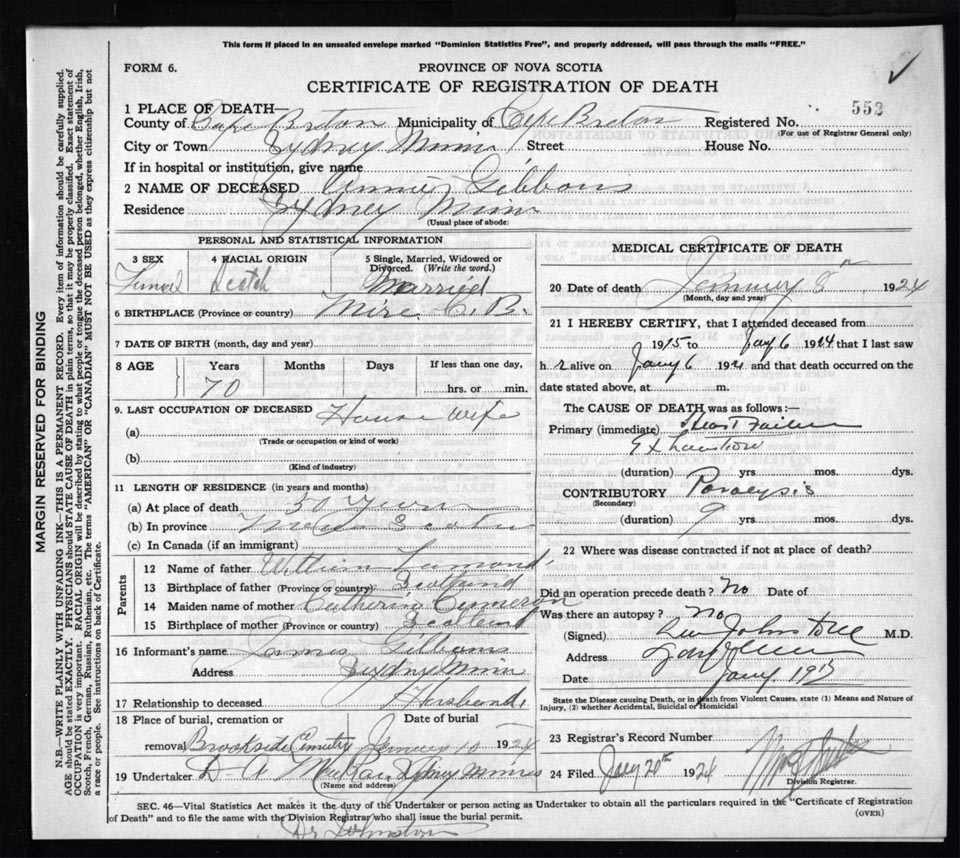 This form if placed in an unsealed envelope marked "Dominion Statistics Free", and properly addressed, will pass through the mails "FREE."
FORM 6.
PROVINCE OF NOVA SCOTIA
CERTIFICATE OF REGISTRATION OF DEATH
1 PLACE OF DEATH—
County of Cape Breton Municipality of Cape Breton Registered No. 552
(For use of Registrar General only)
City or Town Sydney Mines Street House No.
If in hospital or institution, give name
2 NAME OF DECEASED Annie Gibbons
Residence Sydney Mines
(Usual place of abode)
PERSONAL AND STATISTICAL INFORMATION
3 SEX
4 RACIAL ORIGIN
5 Single, Married, Widowed or Divorced. (Write the word.)
Female Scotch Married
6 BIRTHPLACE (Province or country) Mira C. B.
7 DATE OF BIRTH (month, day and year)
8 AGE
Years Months Days If less than one day,
70 hrs. or min.
9. LAST OCCUPATION OF DECEASED House Wife
(a)
(Trade or occupation or kind of work)
(b)
(Kind of industry)
11 LENGTH OF RESIDENCE (in years and months)
(a) At place of death 50 Years
(b) In province Nova Scotia
(c) In Canada (if an immigrant)
Parents
12 Name of father William Lamond
13 Birthplace of father (Province or country) Scotland
14 Maiden name of mother Catherine Cameron
15 Birthplace of mother (Province or country) Scotland
16 Informant's name James Gibbons
Address Sydney Mines
17 Relationship to deceased Husband
18 Place of burial, cremation or Date of burial
removal Brookside Cemetry January 10 1924
19 Undertaker D. A. Sydney Mines
(Name and address)
MEDICAL CERTIFICATE OF DEATH
20 Date of death January 8th 1924
(Month, day and year)
21 I HEREBY CERTIFY, that I attended deceased from
1915 to Jany 6 1924 that I last saw
h r alive on Jany 6 1924 and that death occurred on the
date stated above, at m.
The CAUSE OF DEATH was as follows:—
Primary (immediate) Heart Failure
Exhaustion
(duration) yrs mos. dys.
CONTRIBUTORY Paralysis
(Secondary)
(duration) 9 yrs. mos. dys.
22 Where was disease contracted if not at place of death?
Did an operation precede death? No Date of
Was there an autopsy? No
(Signed) Johnstone M.D.
Address
Date Jany
State the Disease causing Death, or in death from Violent Causes, state (1) Means and Nature of
Injury, (2) whether Accidental, Suicidal or Homicidal
23 Registrar's Record Number
24 Filed Jany 20th 1924
Division Registrar.
SEC. 46—Vital Statistics Act makes it the duty of the Undertaker or person acting as Undertaker to obtain all the particulars required in the "Certificate of Registration
of Death" and to file the same with the Division Registrar who shall issue the burial permit.
(OVER)
Dr Johnston
MARGIN RESERVED FOR BINDING
N.B.—WRITE PLAINLY WITH UNFADING INK—THIS IS A PERMANENT RECORD. Every item of information should be carefully supplied.
AGE should be stated EXACTLY. PHYSICIANS should STATE CAUSE OF DEATH in plain terms, so that it may be properly classified. Exact statement of
OCCUPATION is very important. RACIAL ORIGIN will be described by stating to what people or tongue the deceased person belonged, whether English, Irish,
Scotch, French, German, Russian, Ruthenian, etc. The terms "AMERICAN" OR "CANADIAN" MUST NOT BE USED as they express citizenship but not
a race or people. See instructions on back of Certificate.